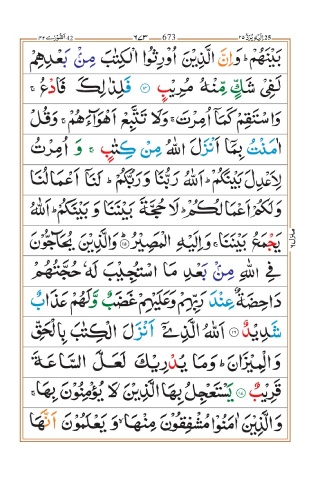 الشورى 42 ٦٧٣ 673 اليه يرد 25
بَيْنَهُمْ ؕ وَاِنَّ الَّذِيْنَ اُوْرِثُوا الْكِتٰبَ مِنْۢ بَعْدِهِمْ
لَفِيْ شَكٍّ مِّنْهُ مُرِيْبٍ ۝۱۴ فَلِذٰلِكَ فَادْعُ ۚ
وَاسْتَقِمْ كَمَاۤ اُمِرْتَ ۚ وَلَا تَتَّبِعْ اَهْوَآءَهُمْ ۚ وَقُلْ
اٰمَنْتُ بِمَاۤ اَنْزَلَ اللّٰهُ مِنْ كِتٰبٍ ۚ وَ اُمِرْتُ
لِاَعْدِلَ بَيْنَكُمْ ؕ اَللّٰهُ رَبُّنَا وَرَبُّكُمْ ؕ لَنَاۤ اَعْمَالُنَا
وَلَكُمْ اَعْمَالُكُمْ ؕ لَا حُجَّةَ بَيْنَنَا وَ بَيْنَكُمْ ؕ اَللّٰهُ
يَجْمَعُ بَيْنَنَا ۚ وَاِلَيْهِ الْمَصِيْرُ ۝۱۵ؕ وَالَّذِيْنَ يُحَآجُّوْنَ
فِي اللّٰهِ مِنْۢ بَعْدِ مَا اسْتُجِيْبَ لَهٗ حُجَّتُهُمْ
دَاحِضَةٌ عِنْدَ رَبِّهِمْ وَعَلَيْهِمْ غَضَبٌ وَّلَهُمْ عَذَابٌ
شَدِيْدٌ ۝۱۶ اَللّٰهُ الَّذِيْۤ اَنْزَلَ الْكِتٰبَ بِالْحَقِّ
وَالْمِيْزَانَ ؕ وَمَا يُدْرِيْكَ لَعَلَّ السَّاعَةَ
قَرِيْبٌ ۝۱۷ يَسْتَعْجِلُ بِهَا الَّذِيْنَ لَا يُؤْمِنُوْنَ بِهَا ۚ
وَالَّذِيْنَ اٰمَنُوْا مُشْفِقُوْنَ مِنْهَا ۙ وَ يَعْلَمُوْنَ اَنَّهَا